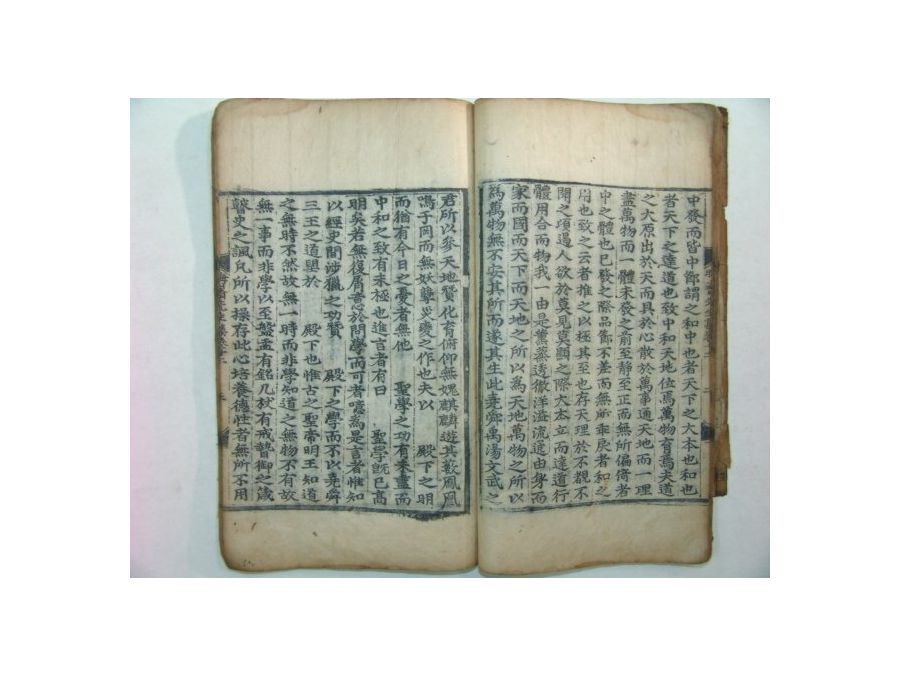 中發而皆中節謂之和中也者天下之大本也和也
者天下之達道也致中和天地位焉萬物育焉夫道
之大原出於天而具於心散於萬事通天地而一理
盡萬物而一體未發之前至靜至正而無所偏倚者
中之體也已發之際品節不差而無所乖戾者和之
用也致之云者推之以極其至也存天理於不覩不
聞之頃遏人欲於莫見莫顯之際大本立而達道行
體用合而物我一由是薰蒸透徹洋溢流通由身而
家而國而天下而天地之所以爲天地萬物之所以
爲萬物無不安其所而遂其生此堯舜禹湯文武之
君所以參天地贊化育俯仰無愧麒麟遊其藪鳳凰
鳴于岡而無妖孽災變之作也夫以 殿下之明
而猶有今日之憂者無他 聖學之功有未盡而
中和之致有未極也進言者有曰 聖學旣已高
明矣若無復屑意於問學而可者噫爲是言者惟知
以經史間涉獵之功贊 殿下之學而不以堯舜
三王之道望於 殿下也惟古之聖帝明王知道
之無時不然故無一時而非學知道之無物不有故
無一事而非學以至盤盂有銘几杖有戒暬御之箴
瞽史之諷凡所以操存此心培養德性者無所不用